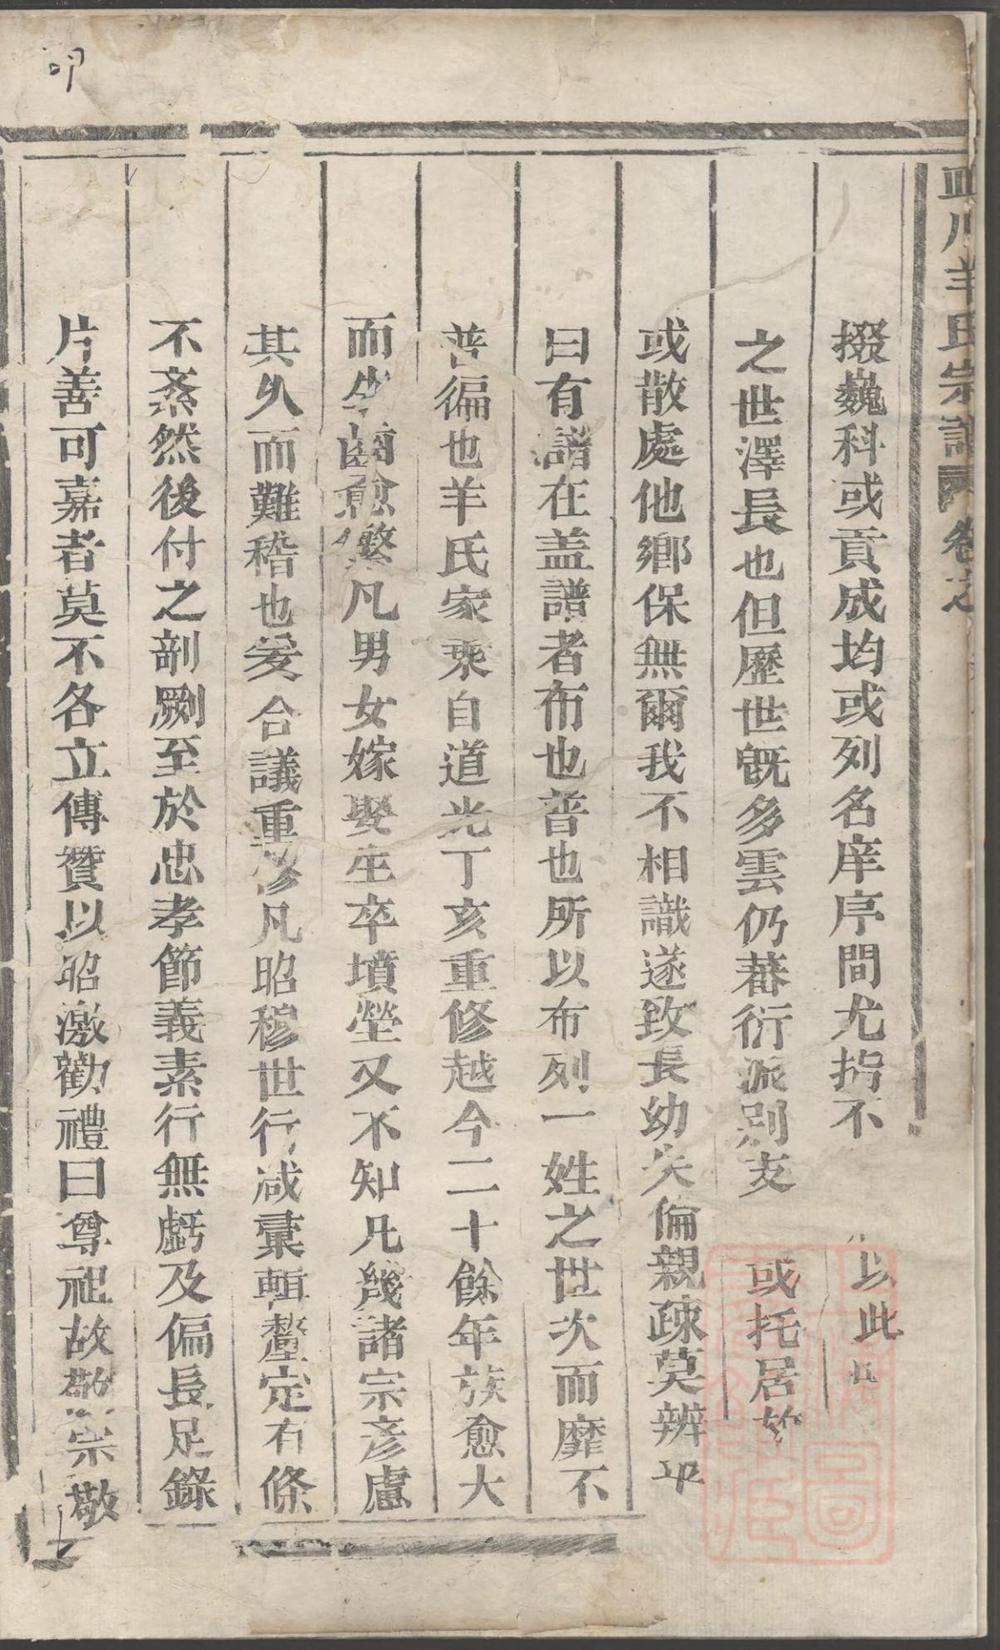 川羊氏宗譜 卷之
掇巍科或貢成均或列名庠序間尤指不 以此
之世澤長也但歷世旣多雲仍蕃衍派別支 或托居於
或散處他鄉保無爾我不相識遂致長幼失倫親疎莫辨
曰有譜在盖譜者布也普也所以布列一姓之世次而靡不
普徧也羊氏家乘自道光丁亥重修越今二十餘年族愈大
而生齒愈繁凡男女嫁娶生卒墳塋又不知凡幾諸宗彥慮
其久而難稽也爰合議重修凡昭穆世行咸彙輯釐定有條
不紊然後付之剞劂至於忠孝節義素行無虧及偏長足錄
片善可嘉者莫不各立傳贊以昭激勸禮曰尊祖故敬宗敬